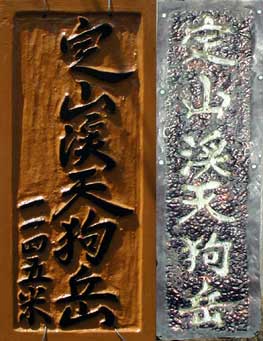 定山渓天狗岳
一一四五米
定山渓天狗岳